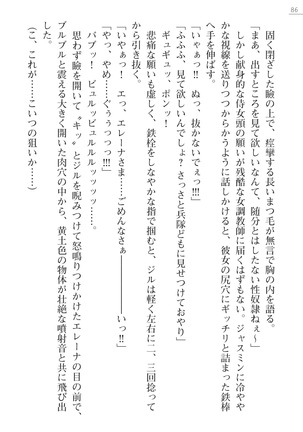 86
固く閉ざした瞼の上で、痙攣する長いまつ毛が無言で胸の内を語る。
「まあ、出すところを見て欲しいなんて、随分とはしたない性奴隷ねぇ～」
しかし献身的な侍女頭の願いが残酷な女調教師に届くはずもない。ジャスミンに冷ややかな視線を送りつつからかうように話しかけると、彼女の尻穴にギッチリと詰まった鉄棒へ手を伸ばす。
「いやぁっ!! ぬっ、抜かないでぇっ!!!」
「ふふふ、見て欲しいんでしょ? さっさと兵隊どもに見せつけておやり」
ギュギュッ、ポンッ!
悲痛な願いも虚しく、鉄栓をしなやかな指で掴むと、ジルは軽く左右に二、三回捻ってから引き抜く。
「いやぁっー! エっ、エレーナさま……ごめんなさぁ――――――いっ!!」
「やっ、やめ……ぐううつっっ!!!」
バブッ! ビュルッビュルルルッッッ……。
思わず瞼を開いて〝キッ〟とジルを睨みつけて怒鳴りつけかけたエレーナの目の前で、ブルブルと震える大きく開いた肉穴の中から、黄土色の物体が壮絶な噴射音と共に飛び出した。
(こ、これが……こいつの狙いか……)